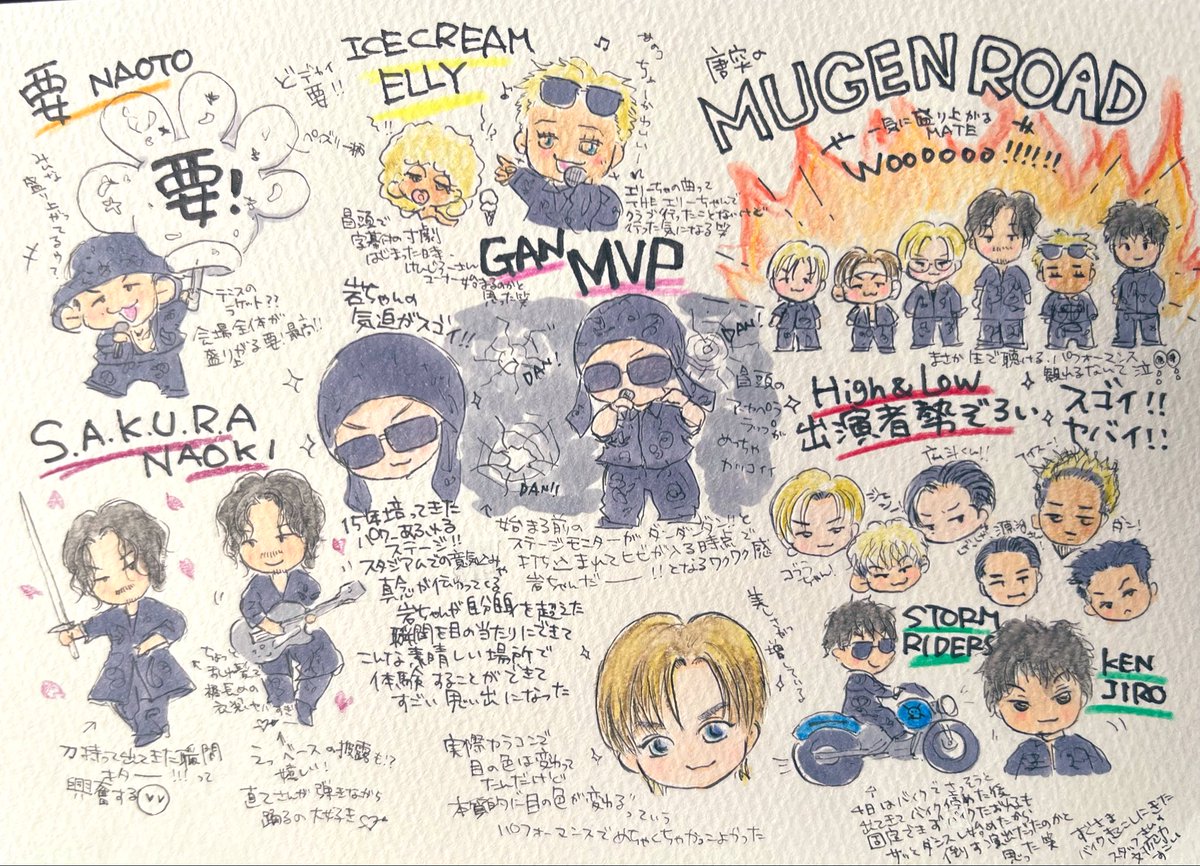 要 NAOTO
どデカイ
要!!
ペイズリー柄
要!
みんな
盛り上がってるって
会場全体が
盛りあがる要!最高!!
ICE CREAM
ELLY
めっちゃかわいいー!
冒頭で
字幕付の寸劇
はじまった時、
けんじろーさん
コーナー始まるのかと
思った笑
エリーちゃんの曲って
THE エリーちゃんで
クラブ行ったことないけど
行った気になる笑
唐突の
MUGEN ROAD
一気に盛り上がる
MATE
Wooooooo!!!!!!
まさか生で聴ける、パフォーマンス
観れるなんて泣
GAN MVP
岩ちゃんの
気迫がスゴイ!!
DAN!
DAN!
DAN!!
冒頭の
アカペラ
ラップが
めっちゃ
カッコイイ
始まる前の
ステージモニターがダンダダン!!と
打ち込まれてヒビが入る時点で
岩ちゃんだー!!となるワクワク感
15年培ってきた
パワーあふれる
ステージ!!
スタジアムでの意気込みや
真念が伝わってくる
岩ちゃんが自分自身を超えた
瞬間を目の当たりにできて
こんな素晴しい場所で
体験することができて
すごい思い出になった
High & Low
出演者勢ぞろい
スゴイ!!
ヤバイ!!
S.A.K.U.R.A
NAOKI
刀持って出てきた瞬間
キター!!!って
興奮する
ちょっと
裾長めの
衣装ヤバすぎ
えっベースの披露も!?
嬉しい!
直てさんが弾きながら
踊るの大好き
美しさが増している
実際カラコンで
目の色は変わって
たんだけど
本質的に目の色が変わる"っていう
パフォーマンスでめちゃくちゃかっこよかった
STORM
RIDERS
KEN
JIRO
4日はバイクで
出てきてバイク停めた後
固定さまずバイクたおれるも
サッとダンスしはじめたから
倒す演出だったのかと
思った笑
すぐさま
バイク起こしにきた
スタッフさんの
対応力
すごい